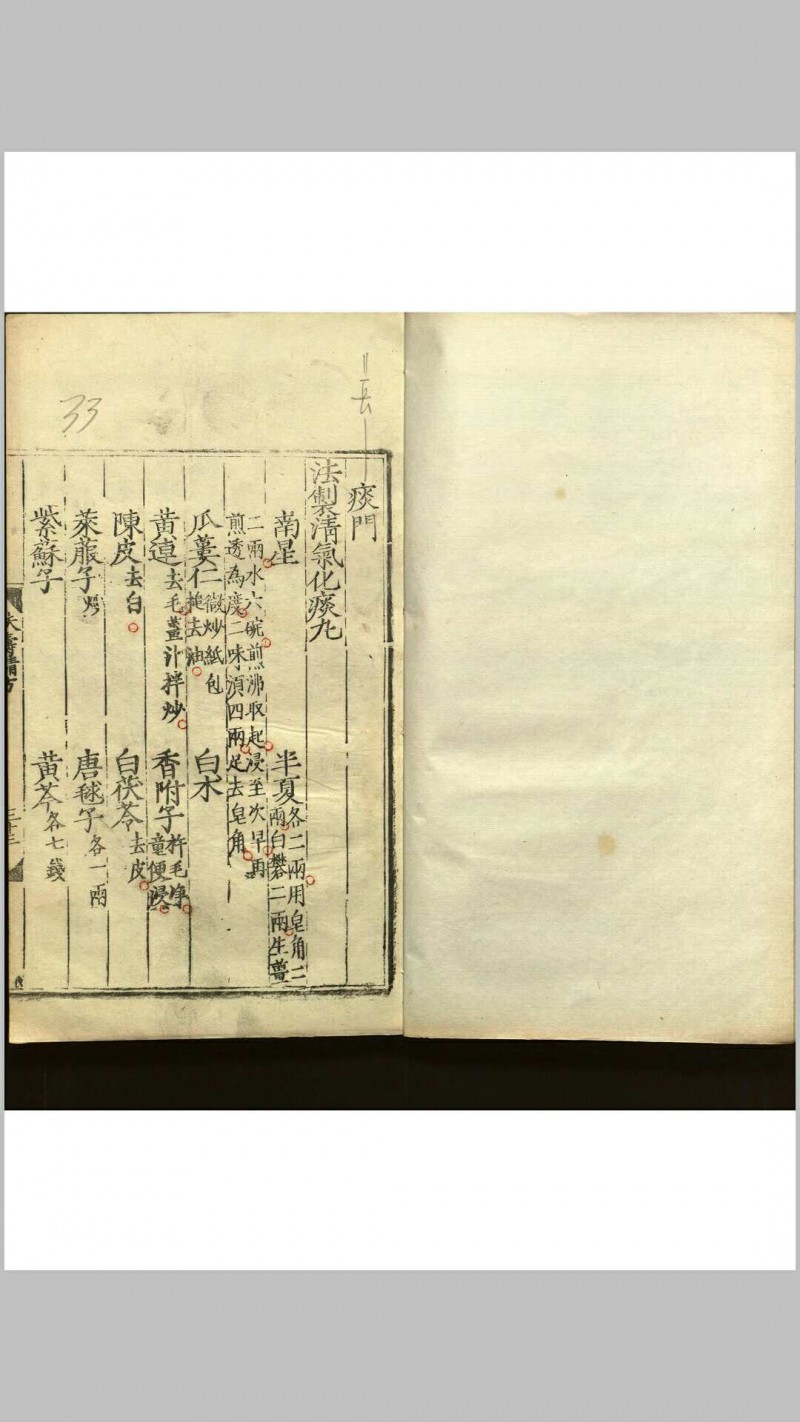 33
痰門
法製清氣化痰丸
南星 半夏各二兩用皂角二
兩白礬二兩生薑
二兩水六碗煎沸取起浸至次早再
煎透為度二味須四兩足去皂角
瓜蔞仁微炒紙包
搥去油 白术
黃連去毛薑汁拌炒 香附子杵毛净
童便浸
陳皮去白 白茯苓去皮
萊菔子炒 唐毬子各一兩
紫蘇子 黃芩各七錢
三十三